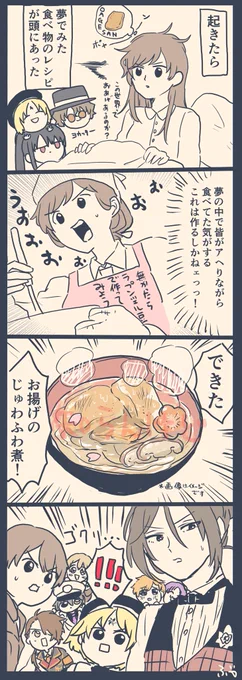 起きたら
夢でみた
食べ物のレシピ
が頭にあった
OAGESAN
ポャ
この世界って
おあげあるのか?
ヨカッター
夢の中で皆がアヘりながら
食べてた気がする
これは作るしかねェっっ!
うおおおおお
無かたら
ラプンツェル豆
で作って
みよう
できた
お揚げの
じゅわふわ煮!
*画像はイメージ
です
ゴクリ…
!!!